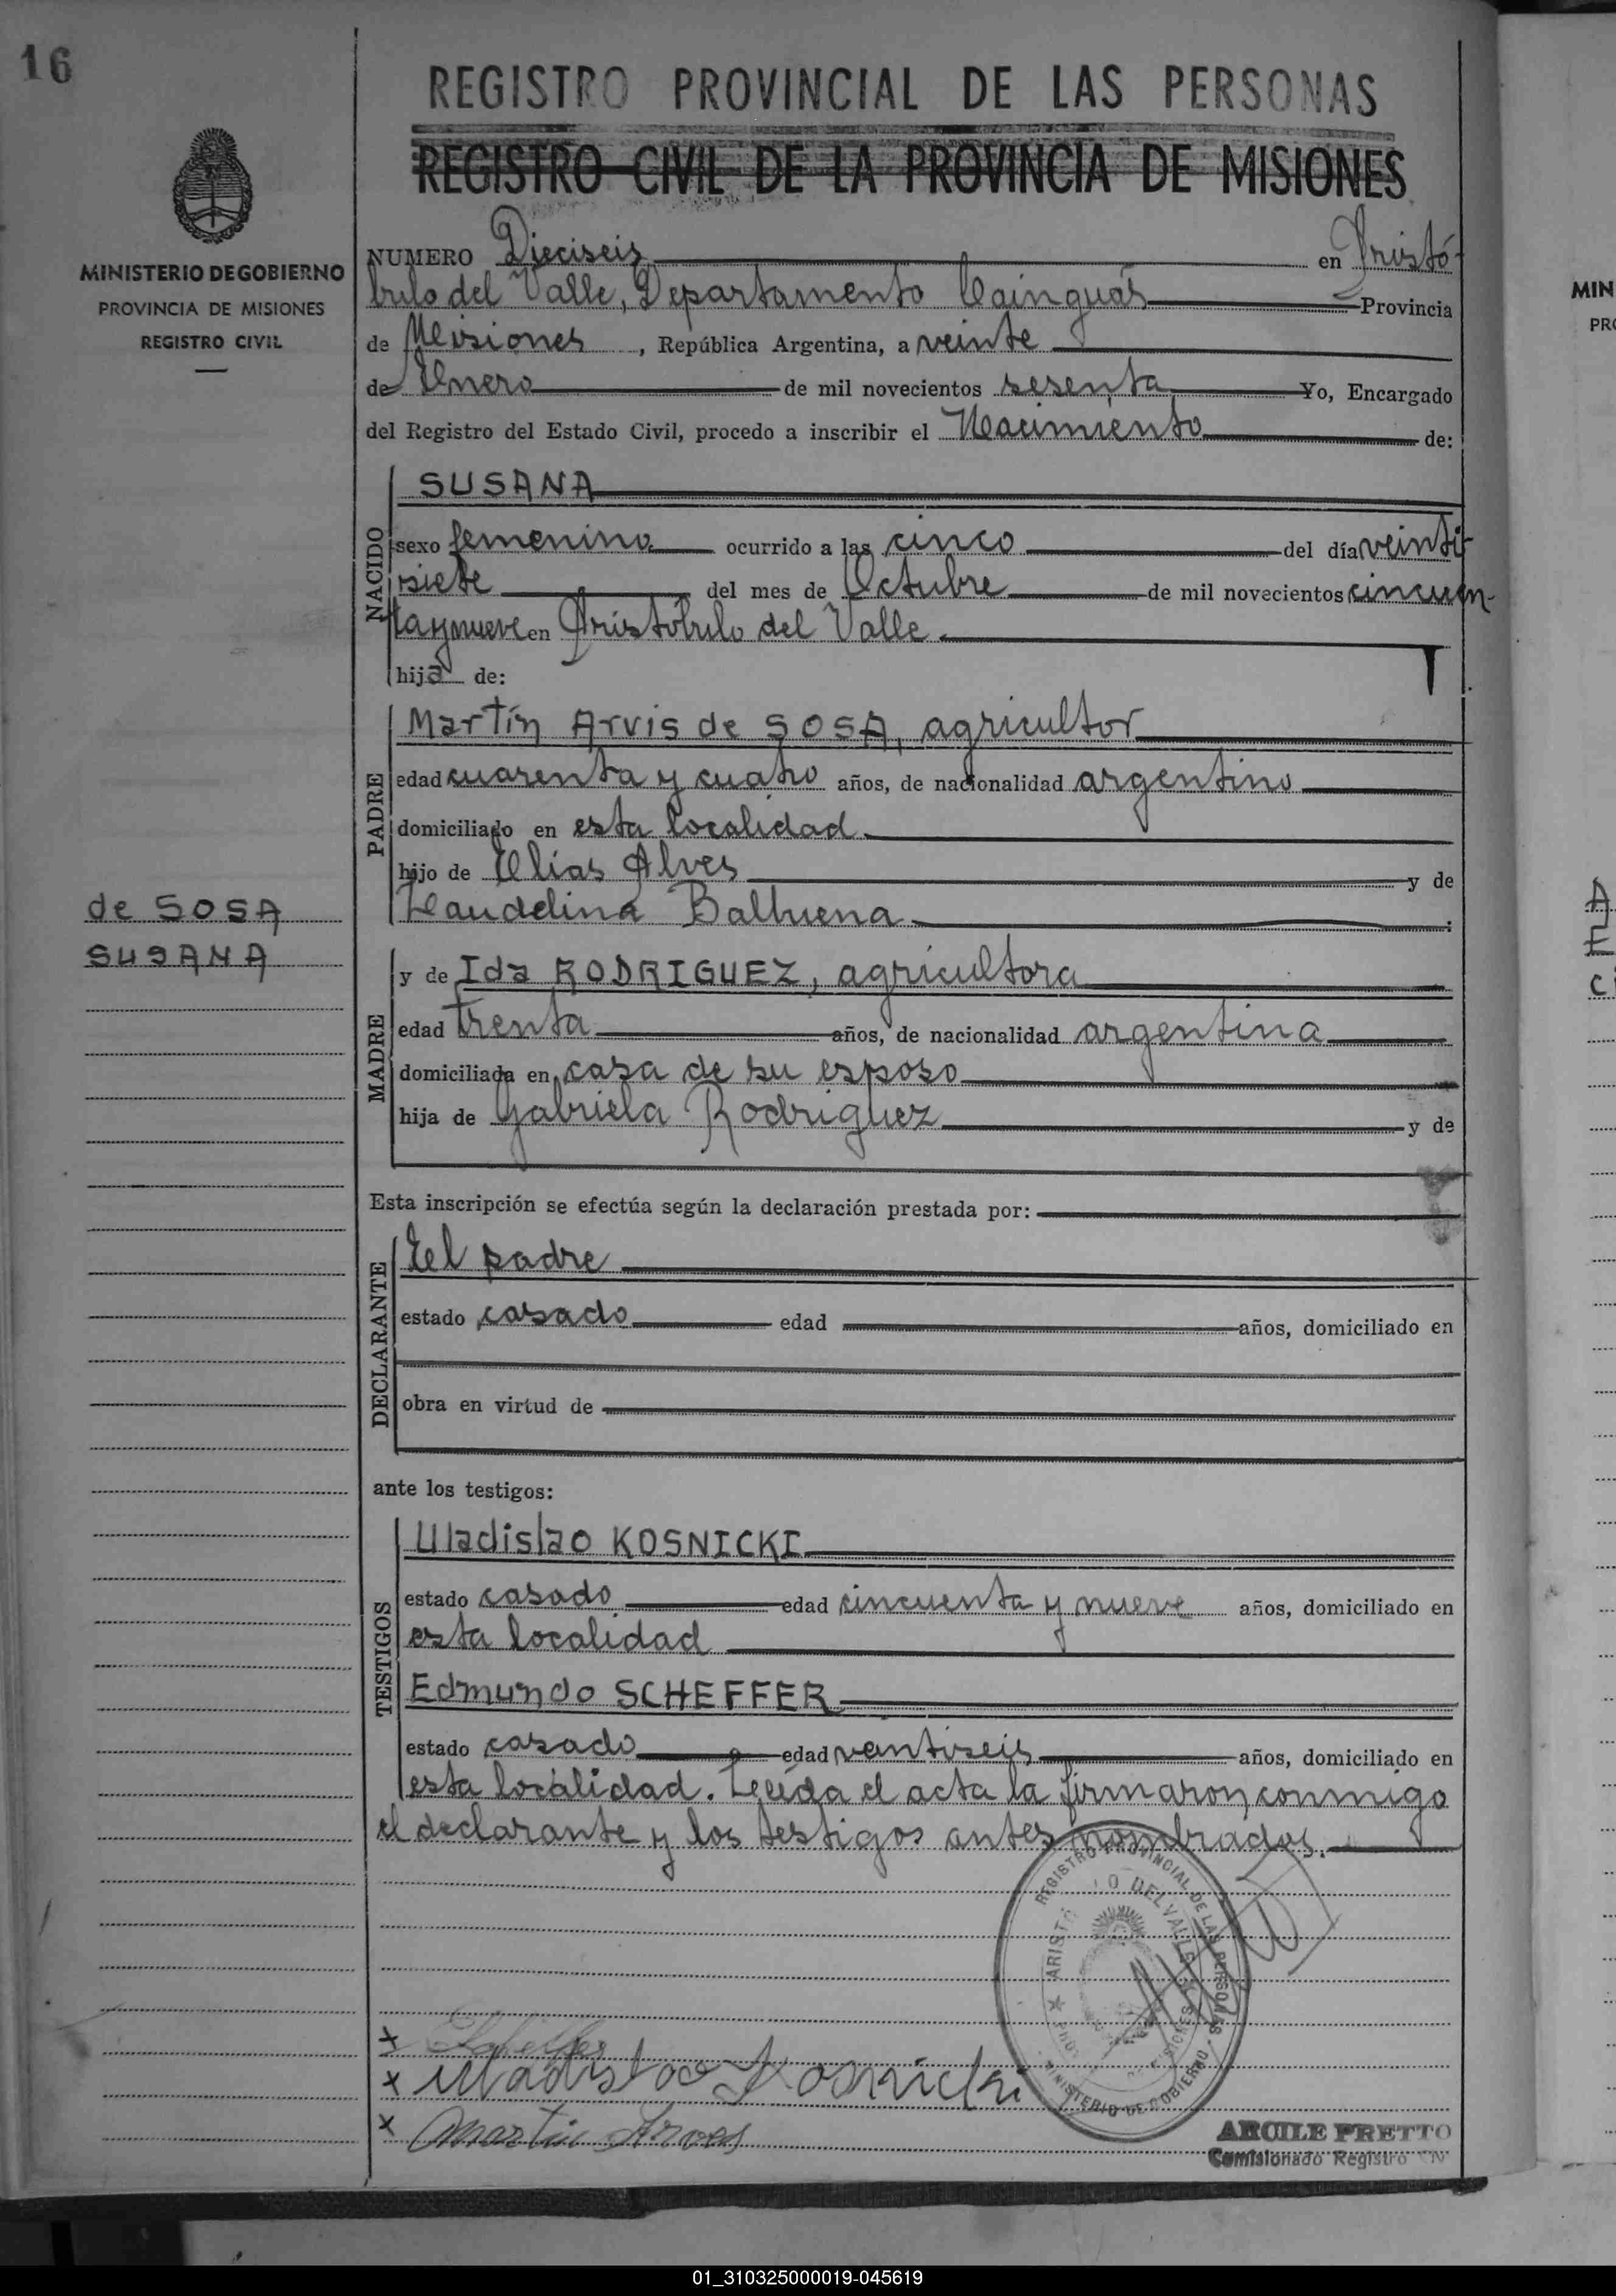 16
REGISTRO PROVINCIAL DE LAS PERSONAS
REGISTRO CIVIL DE LA PROVINCIA DE MISIONES
MINISTERIO DE GOBIERNO
PROVINCIA DE MISIONES
REGISTRO CIVIL
NUMERO Dieciseis en Aristó-
bulo del Valle, Departamento Cainguás Provincia
de Misiones, República Argentina, a veinte
de Enero de mil novecientos sesenta Yo, Encargado
del Registro del Estado Civil, procedo a inscribir el Nacimiento de:
NACIDO
SUSANA
sexo femenino ocurrido a las cinco del día veinti-
siete del mes de Octubre de mil novecientos cincuen-
ta y nueve en Aristóbulo del Valle.
hija de:
PADRE
Martín Arvis de SOSA, agricultor
edad cuarenta y cuatro años, de nacionalidad argentino
domiciliado en esta localidad.
hijo de Elías Alves y de
Laudelina Balbuena
de SOSA
SUSANA
MADRE
y de Ida RODRIGUEZ, agricultora
edad trenta años, de nacionalidad argentina
domiciliada en casa de su esposo
hija de Gabriela Rodriguez y de
Esta inscripción se efectúa según la declaración prestada por:
DECLARANTE
El padre
estado casado edad años, domiciliado en
obra en virtud de
ante los testigos:
TESTIGOS
Uladislao KOSNICKI
estado casado edad cincuenta y nueve años, domiciliado en
esta localidad
Edmundo SCHEFFER
estado casado edad ventiseis años, domiciliado en
esta localidad. Leída el acta la firmaron conmigo
el declarante y los testigos antes nombrados.
REGISTRO PROVINCIAL DE LAS PERSONAS
MINISTERIO DE GOBIERNO
x Scheffer
x Uladislao Kosnicki
x Martin Arves
ARCILE PRETTO
Comisionado Registro
MIN
PRO
A
E
C
01_310325000019-045619